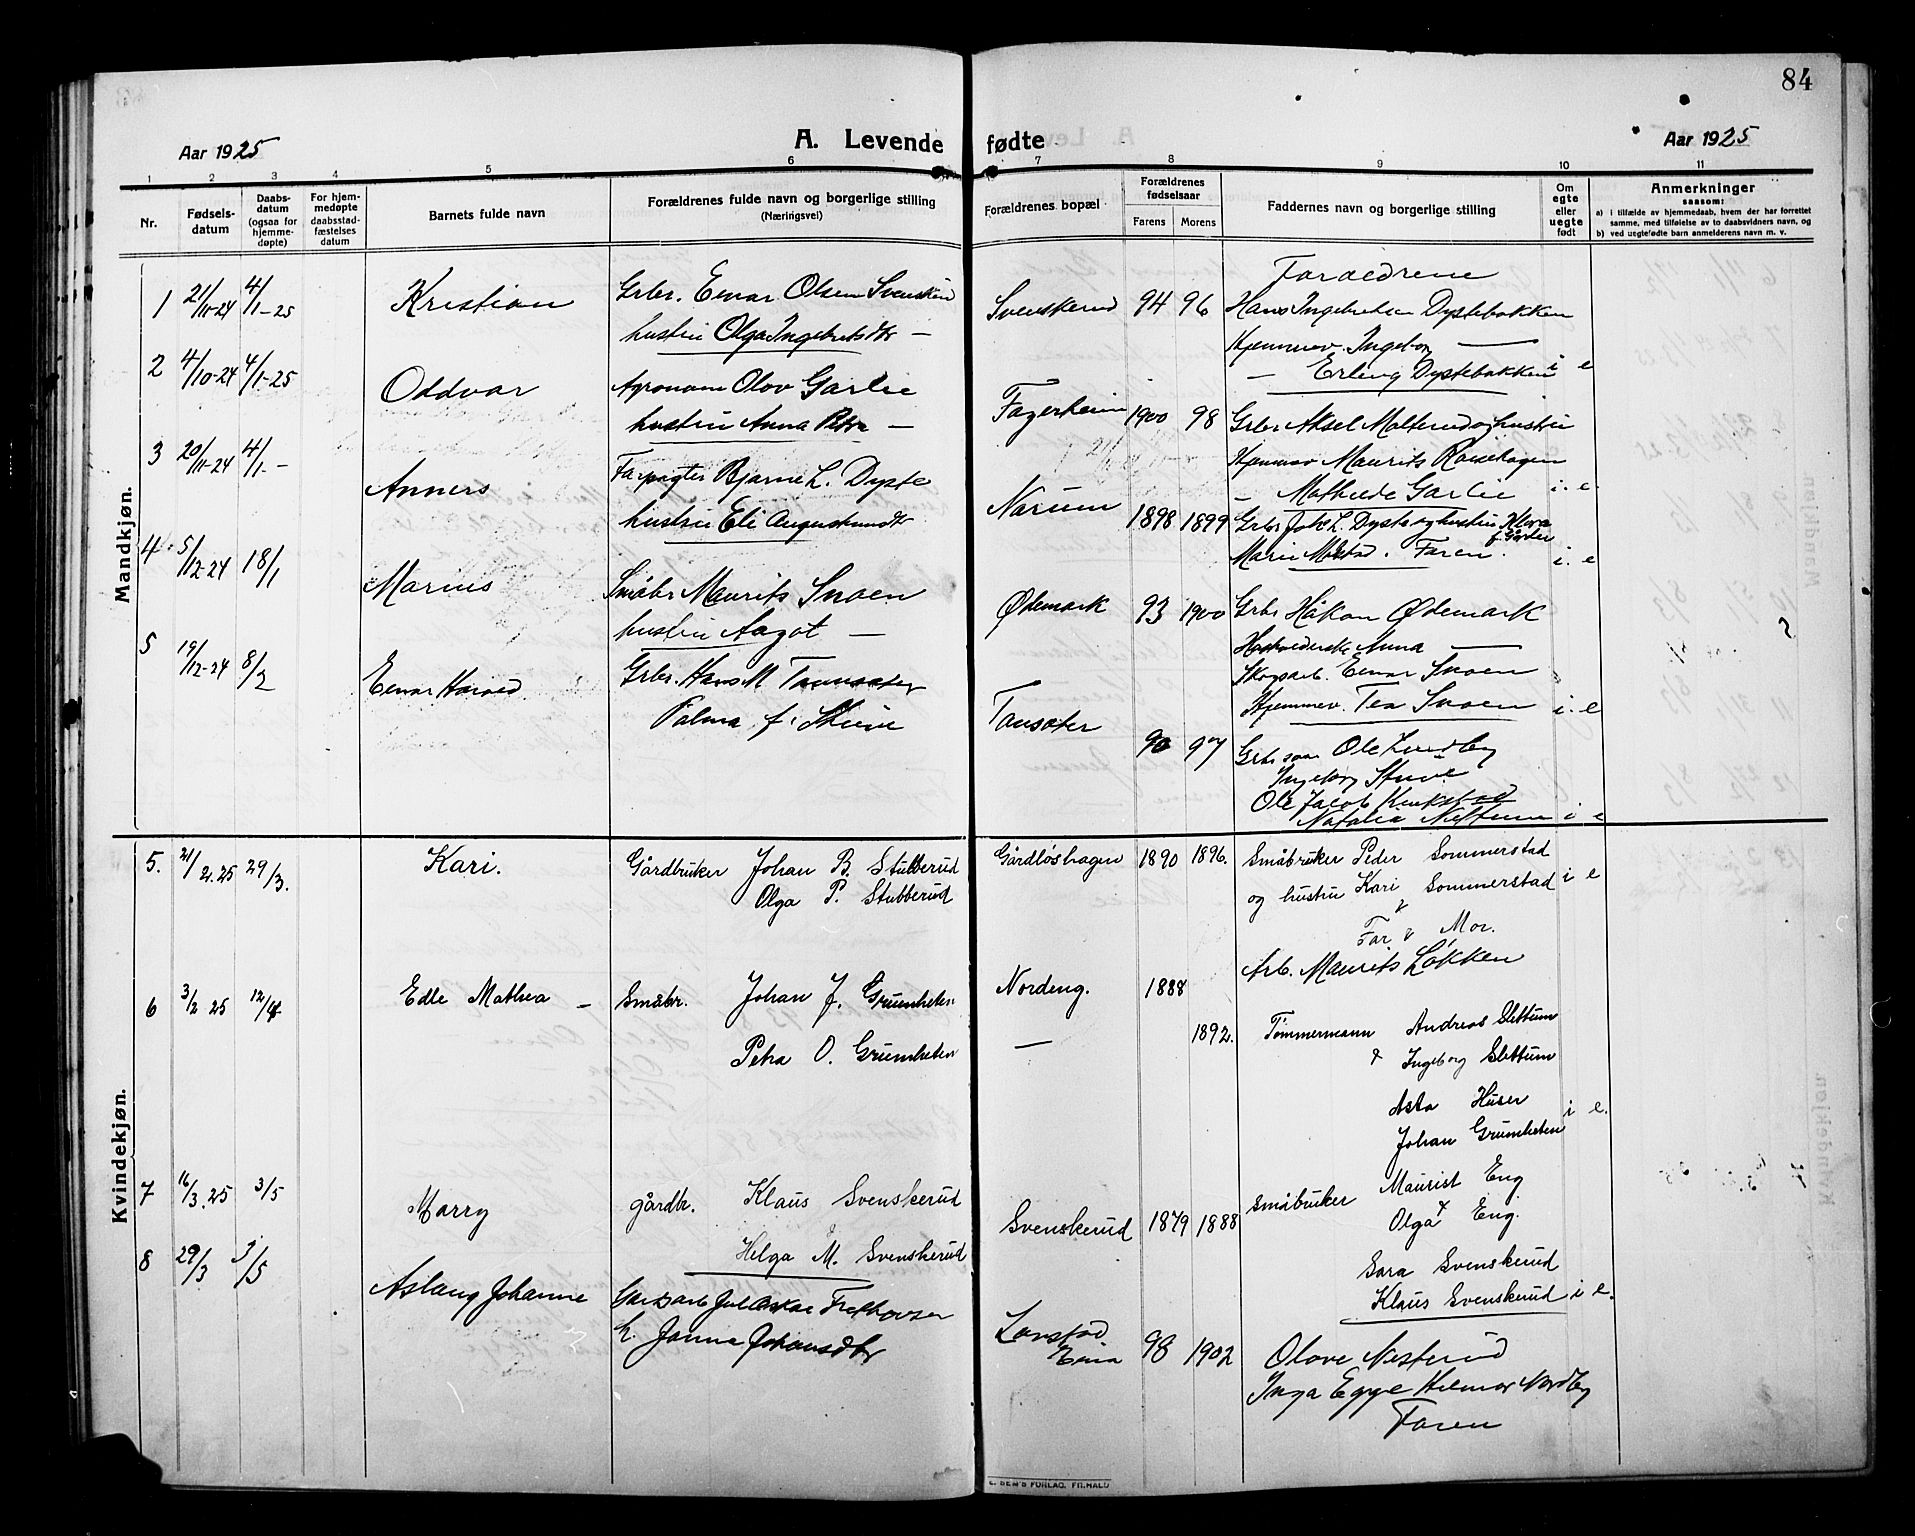 84
Aar 1925
A. Levende fødte
Aar 1925
1 2 3 4 5 6 7 8 9 10 11
Nr.
Fødsels-
datum
Daabs-
datum
(ogsaa for
hjemme-
døpte)
For hjem-
medøpte
daabsstad-
fæstelses
datum
Barnets fulde navn
Forældrenes fulde navn og borgerlige stilling
(Næringsvei)
Forældrenes bopæl
Forældrenes
fødselsaar
Farens Morens
Faddernes navn og borgerlige stilling
Om
egte
eller
uegte
født
Anmerkninger
saasom:
a) i tilfælde av hjemmedaab, hvem der har forrettet
samme, med tilføielse av to daabsvidners navn, og
b) ved uegtefødte barn anmelderens navn m. v.
Mandkjøn.
1 21/11-24 4/1-25 Kristian Grbr. Einar Olsen Svenskerud Svenskerud 94 96 Foraeldrene
hustru Olga Ingebretsdtr —
Hans Ingebretsen Dystebakken
Hjemmev. Ingeborg —
— Erling Dystebakken i e
2 4/10-24 4/1-25 Oddvar Agronom Olov Garlie Fagerheim 1900 98 Grbr Aksel Malterud og hustru
hustru Anna Petra —
Hjemmev Maurits Roisehagen
— Mathilde Garlie i. e.
3 20/11-24 4/1- Anners Forpagter Bjarne L. Dyste Narum 1898 1899 Grbr Johs L. Dyste og hustru Klara
f. Garlie
hustru Eli Augustsundtr
Marie Molstad. Faren. i. e
4. 5/12-24 18/1 Marius Småbr Maurits Snoen Ødemark 93 1900 Grbr Håkon Ødemark
hustru Aagot —
Anna —
Skogsarb. Einar Snoen
Hjemmev. Tea Snoen i. e
5 19/12-24 8/2 Einar Harald Grbr. Hans M Tønsæter Tønsæter 90 97 Grbr søn Ole Lundby
Palma f. Stuve
Ingeborg Stuve
Ole Jacob
Natalia i e
Kvindekjøn.
5. 21/2.25 29/3. Kari. Gårdbruker Johan B. Stubberud Gårdløshagen 1890 1896. Småbruker Peder Sommerstad
Olga P. Stubberud
og hustru Kari Sommerstad i e
&
Far & Mor.
Arb. Maurits Løkken
6 3/2 25 12/4 Edle Mathea — Småbr. Johan J. Grumheten Nordeng. 1888
Petra O. Grumheten — 1892. Tømmermann Andreas Slettum
& Ingeborg Slettum
Asta Huser i e.
Johan Grumheten
7 16/3.25 3/5 Marry gårdbr. Klaus Svenskerud Svenskerud 1879 1888 småbruker Maurist Eng
&
Helga M. Svenskerud
&
Olga Eng.
Sara Svenskerud
Klaus Svenskerud i e.
8 29/3 3/5 Aslaug Johanne Garsarb Jul Oskar Frethorsen 98 1902 Olave Nesterud
h. Janna Johansdtr
Inga Egge Hilmar Nordby
Faren
E. SEM'S FORLAG, FR.HALD